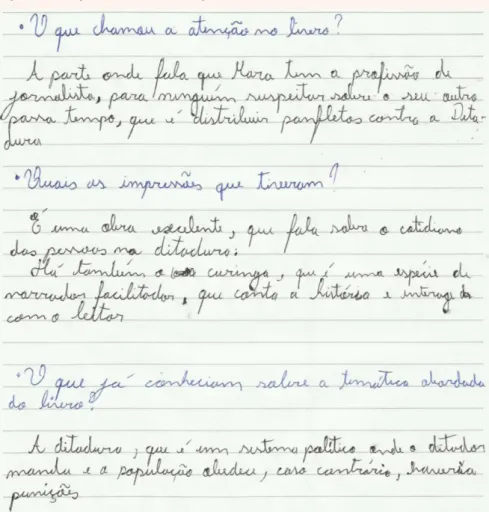 • O que chamou a atenção no livro?
A parte onde fala que Mara tem a profissão de
jornalista, para ninguém suspeitar sobre o seu outro
passa tempo, que é distribuir panfletos contra a Dita-
dura
• Quais as impressões que tiveram?
É uma obra excelente, que fala sobre o cotidiano
das pessoas na ditadura.
Há também o curinga, que é uma espécie de
narrador facilitador, que conta a história e interage
com o leitor
• O que já conheciam sobre a temática abordada
do livro?
A ditadura, que é um sistema político onde o ditador
manda e a população obedece, caso contrário, haverá
punições